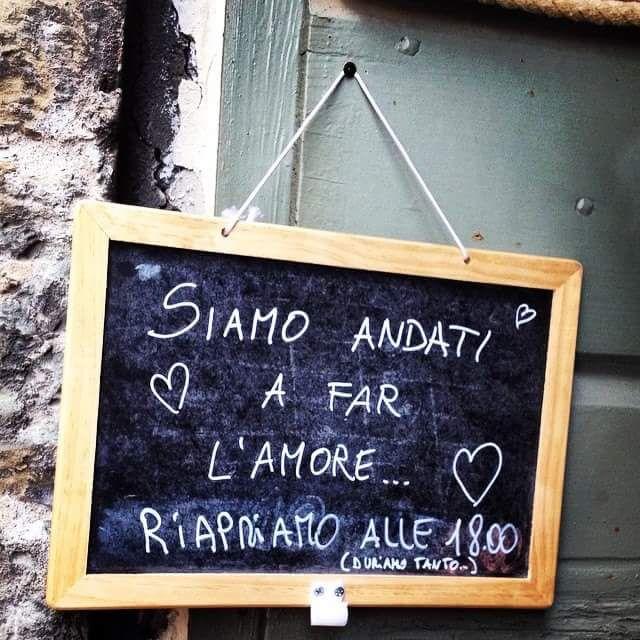 SIAMO ANDATI
A FAR
L'AMORE...
RIAPRIAMO ALLE 18.00
(DURIAMO TANTO...)